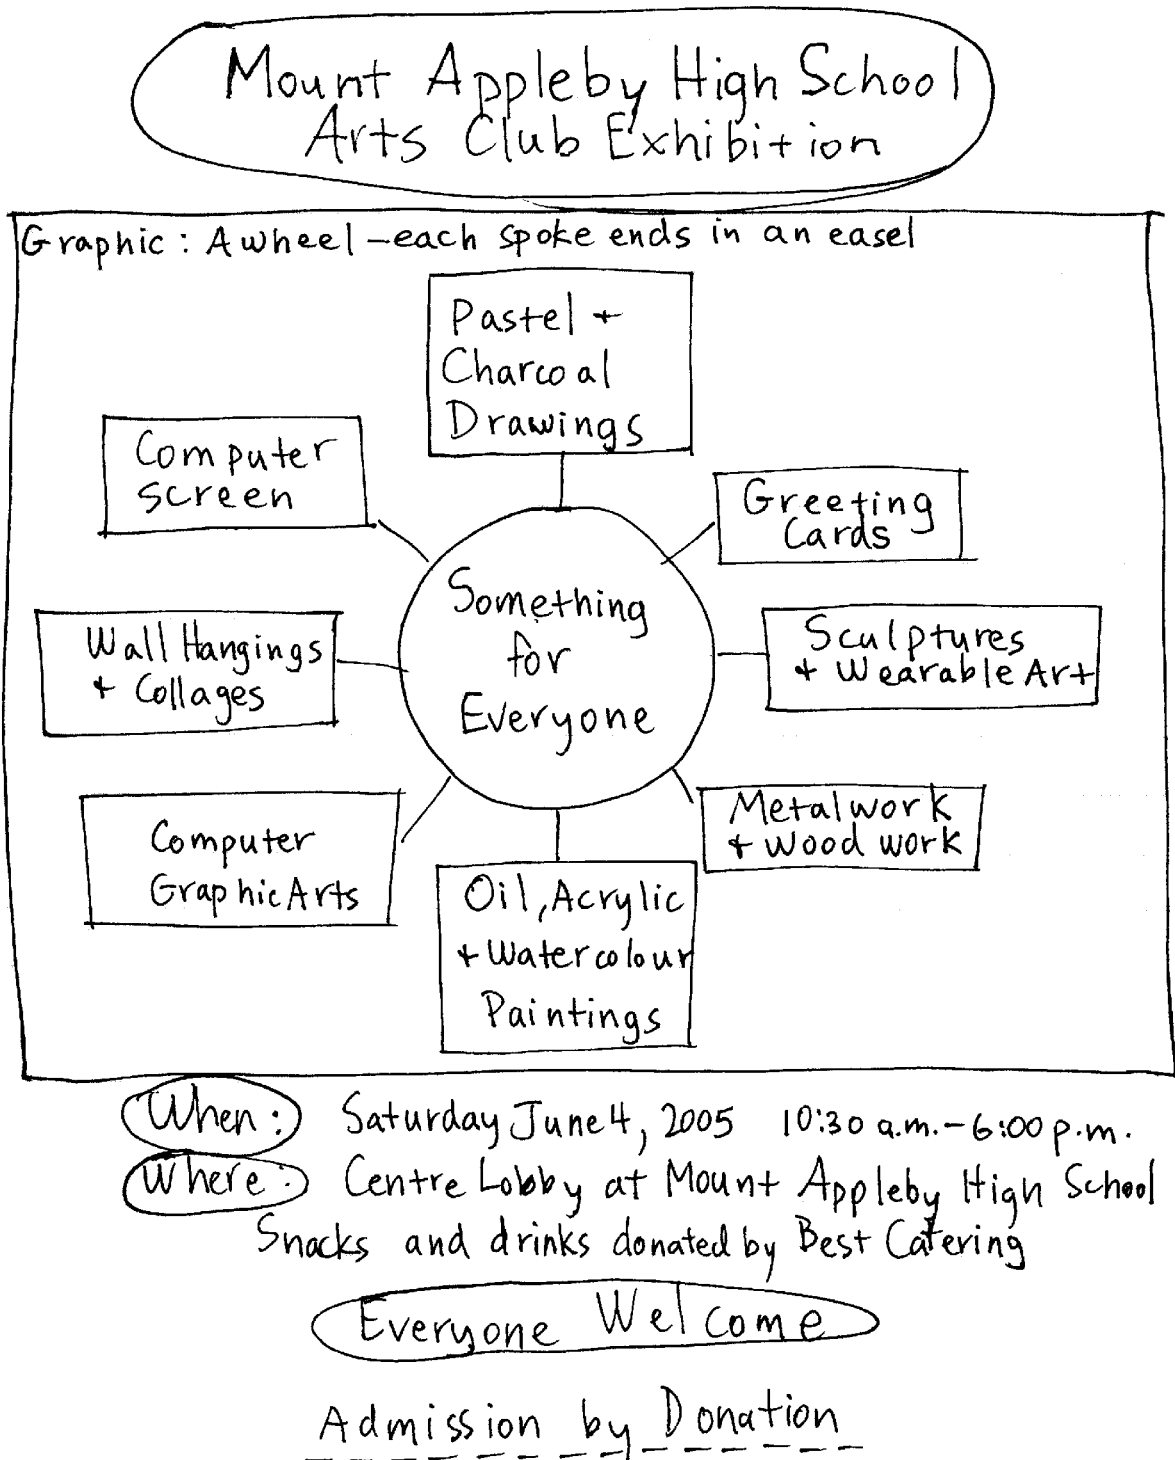 Mount Appleby High School
Arts Club Exhibition
Graphic: A wheel - each spoke ends in an easel
Pastel +
Charcoal
Drawings
Computer
screen
Greeting
Cards
Something
for
Everyone
Wall Hangings
+ Collages
Sculptures
+ Wearable Art
Computer
Graphic Arts
Metalwork
+ Wood work
Oil, Acrylic
+ Watercolour
Paintings
When: Saturday June 4, 2005 10:30 a.m. - 6:00 p.m.
Where: Centre Lobby at Mount Appleby High School
Snacks and drinks donated by Best Catering
Everyone Welcome
Admission by Donation